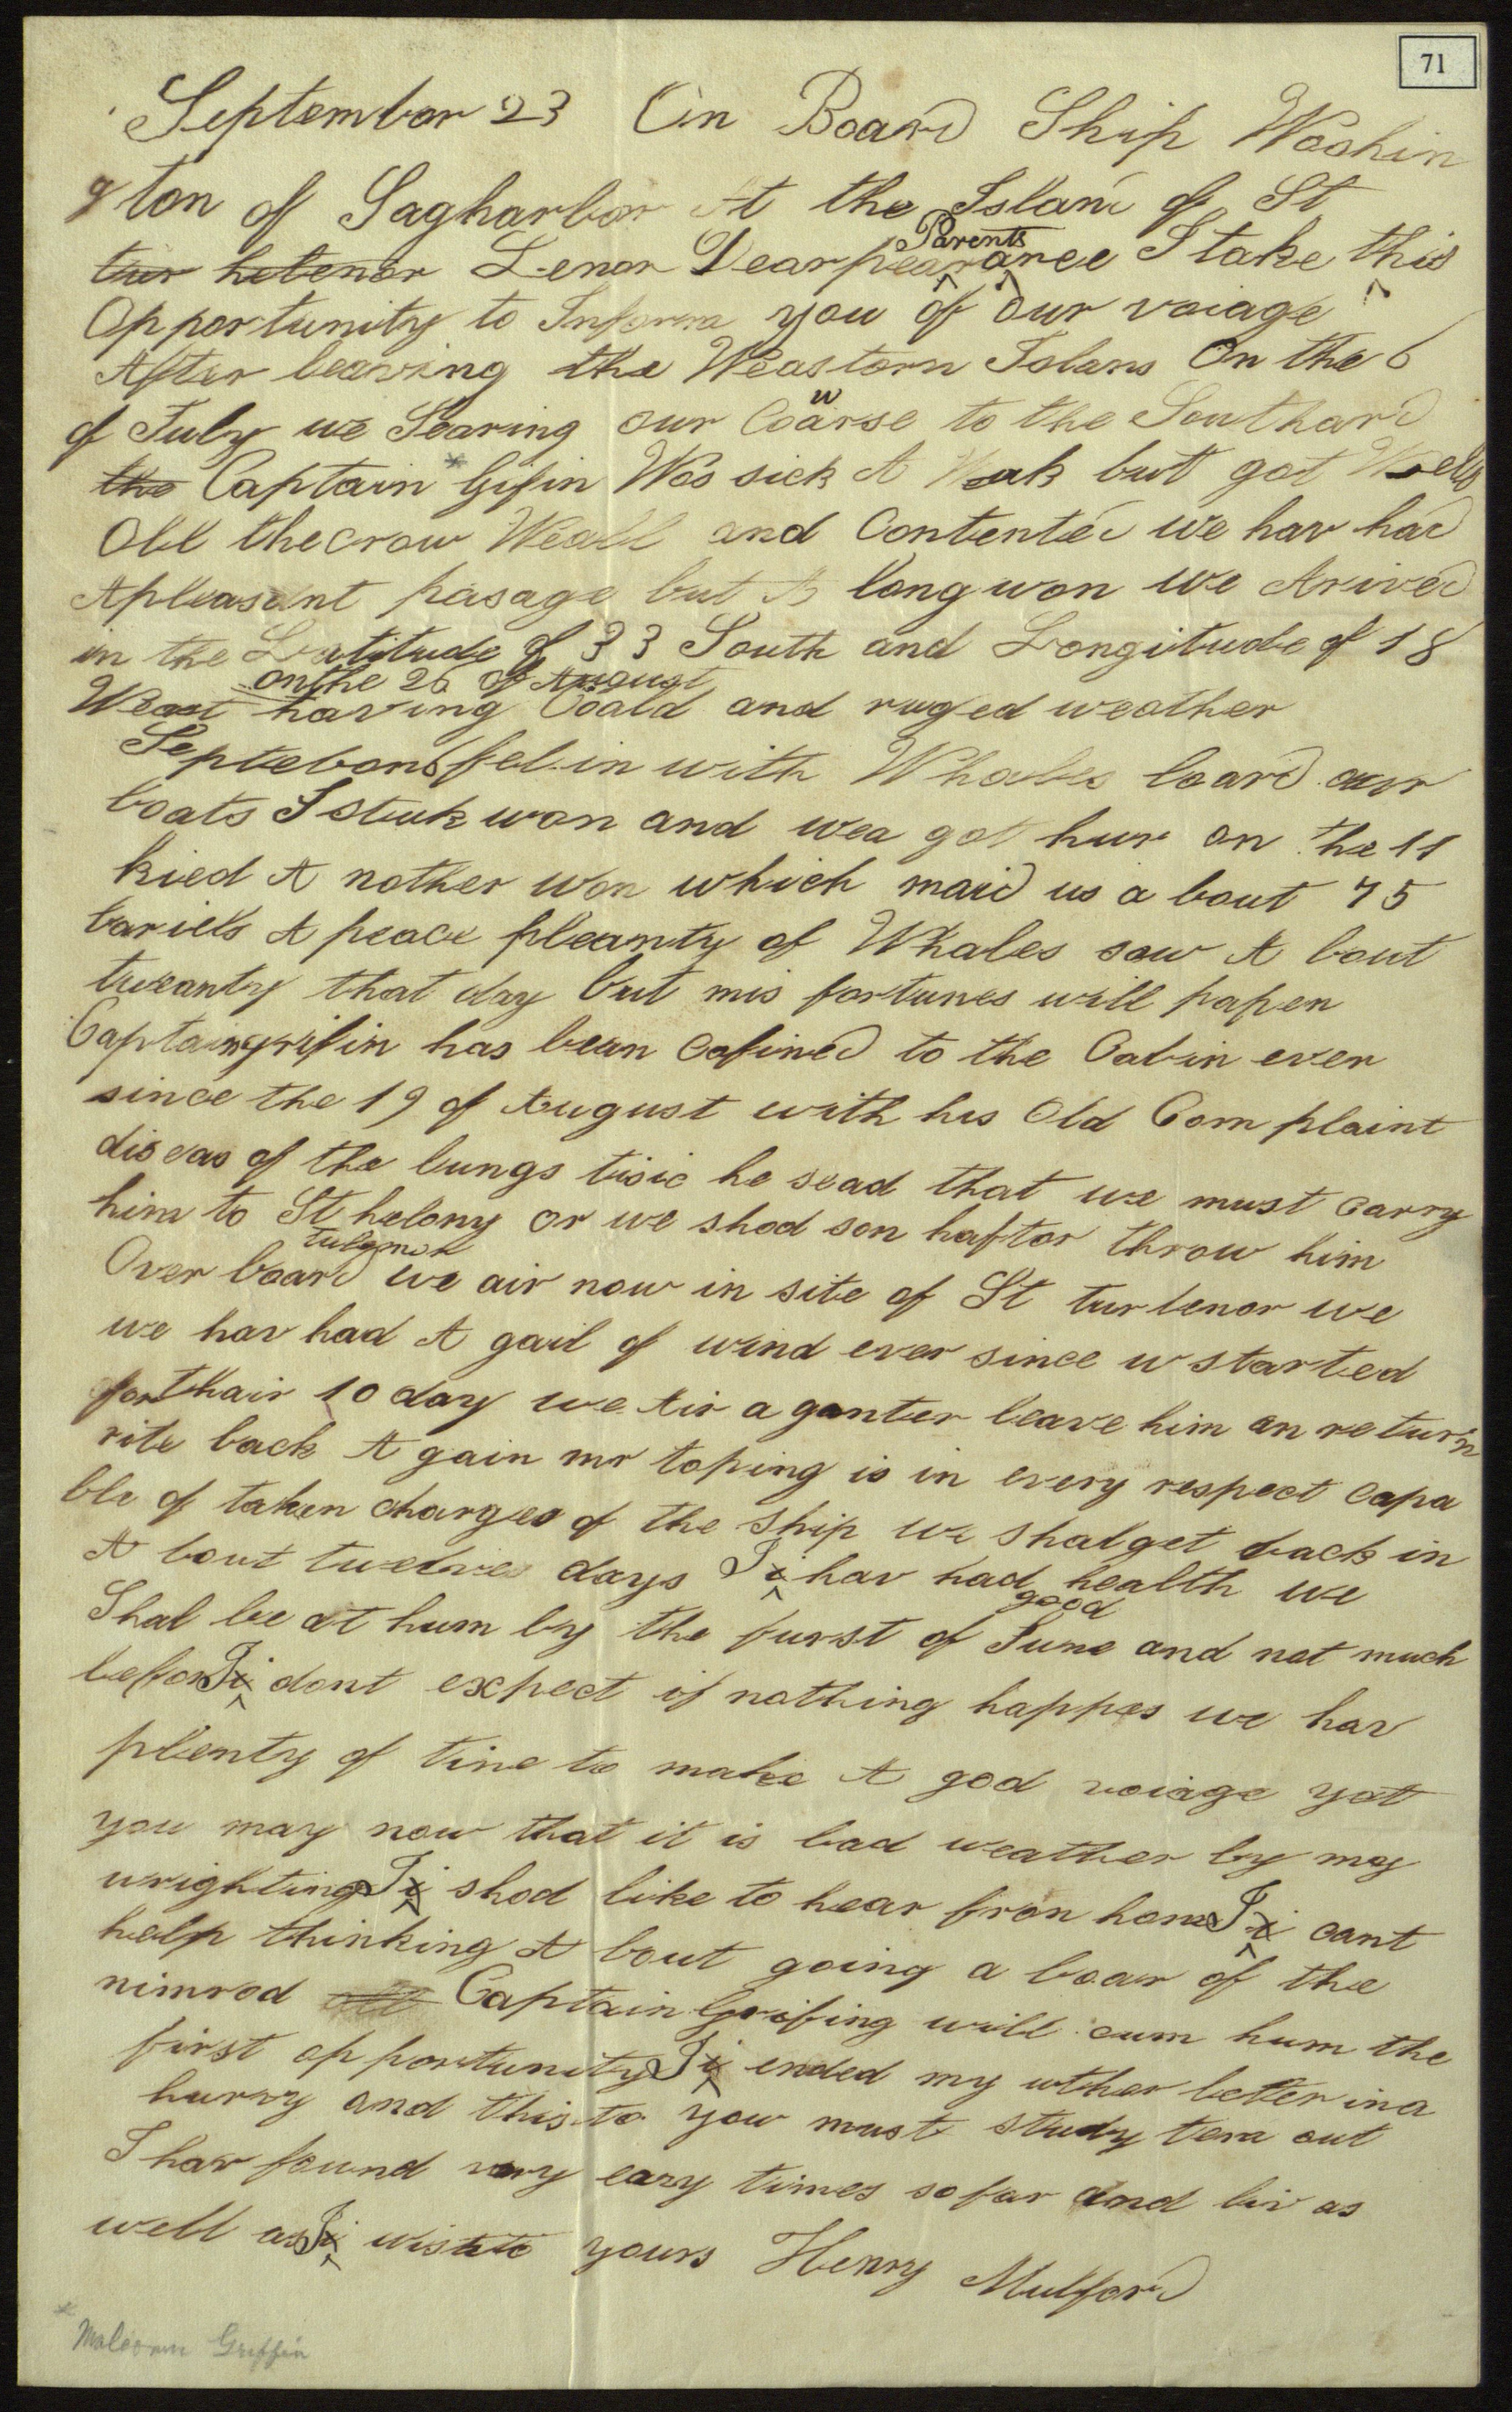 71
September 23 On Board Ship Washin
gton of Sagharbor At the Island of St
tur helenor Lenor Dear pearance Parents I take this
Opportunity to Inform you of our voiage
After leaving the Weastorn Islans On the 6
of July we Stearing our Coarse to the Southard
the Captain Gifin Was sick A Weak but got Well
All the crow Weall and Contented we hav had
A pleasant pasage but A long won we Arived
in the Latitude of 33 South and Longitude of 18
on the 26 of August
West having Coald and ruged weather
Septebor 6 fel in with Whales loard our
boats I stuk won and wea got hur on the 11
kied A nother won which maid us a bout 75
bariels A peace pleanty of Whales saw A bout
tweanty that day but mis fortunes will papen
Captain grifin has bean cofined to the Cabin ever
since the 19 of August with his Old Com plaint
diseas of the lungs tisic he sead that we must carry
him to St helony or we shod son haftor throw him
Over board we air now in site of St tur lenor we
we hav had A gail of wind ever since w started
for thair 10 day we Air a ganter leave him an return
rite back A gain mr toping is in every respect capa
ble of taken charges of the ship we shal get back in
A bout twelve days I i hav had good health we
Shal be at hum by the furst of June and not much
befor I i dont expect if nothing happes we hav
plenty of tine to make A god voiage yet
you may now that it is bad weather by my
wrighting I i shod like to hear fron home I i cant
help thinking A bout going a boar of the
nimrod Captain Grifing will cum hum the
first opportunity I i ended my uther letter in a
hurry and this to you must study tem out
I hav found very eazy times so far and liv as
well as I i wish to yours Henry Mulford
* Malcom Griffin